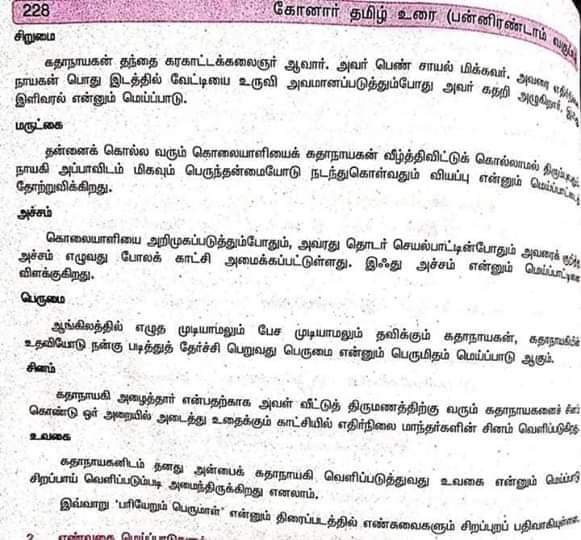 228 கோனார் தமிழ் உரை (பன்னிரண்டாம்
சிறுமை
கதாநாயகன் தந்தை கரகாட்டக்கலைஞர் ஆவார். அவர் பெண் சாயல் மிக்கவர். அவரை
நாயகன் பொது இடத்தில் வேட்டியை உருவி அவமானப்படுத்தும்போது அவர் கதறி அழுகிறார்.
இளிவரல் என்னும் மெய்ப்பாடு.
மருட்கை
தன்னைக் கொல்ல வரும் கொலையாளியைக் கதாநாயகன் வீழ்த்திவிட்டுக் கொல்லாமல்
நாயகி அப்பாவிடம் மிகவும் பெருந்தன்மையோடு நடந்துகொள்வதும் வியப்பு என்னும்
தோற்றுவிக்கிறது.
அச்சம்
கொலையாளியை அறிமுகப்படுத்தும்போதும், அவரது தொடர் செயல்பாட்டின்போதும் அவரைக்
அச்சம் எழுவது போலக் காட்சி அமைக்கப்பட்டுள்ளது. இஃது அச்சம் என்னும்
விளக்குகிறது.
பெருமை
ஆங்கிலத்தில் எழுத முடியாமலும் பேச முடியாமலும் தவிக்கும் கதாநாயகன்,
உதவியோடு நன்கு படித்துத் தேர்ச்சி பெறுவது பெருமை என்னும் பெருமிதம் மெய்ப்பாடு ஆகும்.
சினம்
கதாநாயகி அழைத்தார் என்பதற்காக அவள் வீட்டுத் திருமணத்திற்கு வரும் கதாநாயகனைச்
கொண்டு ஓர் அறையில் அடைத்து உதைக்கும் காட்சியில் எதிர்நிலை மாந்தர்களின் சினம்
உவகை
கதாநாயகனிடம் தனது அன்பைக் கதாநாயகி வெளிப்படுத்துவது உவகை என்னும்
சிறப்பாய் வெளிப்படும்படி அமைந்திருக்கிறது எனலாம்.
இவ்வாறு 'பரியேறும் பெருமாள்' என்னும் திரைப்படத்தில் எண்சுவைகளும் சிறப்புறப்
2.